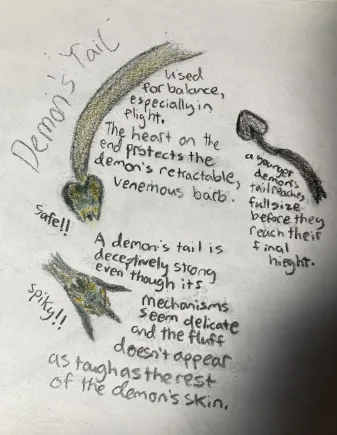 Demon's Tail
Used
for balance,
especially in
flight.
The heart on the
end protects the
demon's retractable,
venemous barb.
a younger
demon's
tail reaches
full size
before they
reach their
final
hieght.
Safe!!
A demon's tail is
deceptively strong
even though its
mechanisms
seem delicate
and the fluff
doesn't appear
as tough as the rest
of the demon's skin.
Spiky!!